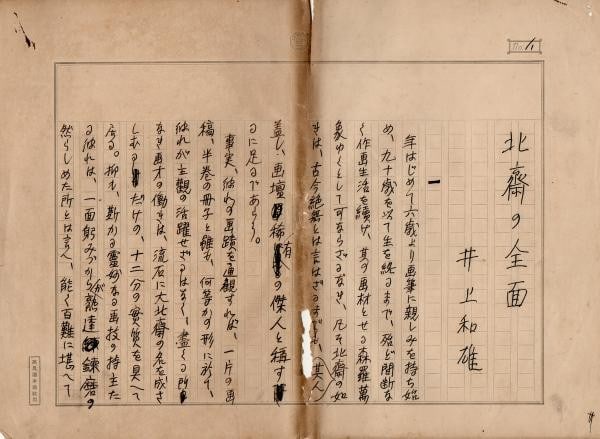 北齋の全面
井上和雄
一
年はじめて六歳より画筆に親しみを持ち始
め、九十歳を以て生を終るまで、殆ど間断な
く作画生活を續け、其の画材とせる森羅萬
象ゆくとして可ならざるなき、凡そ北齋の如
きは、古今絶無とは言はざるまでも、其人
蓋し、画壇稀有の傑人と稱す
るに足るであらう。
事実、彼れの画蹟を通観すれば、一片の画
稿、半巻の冊子と雖も、何等かの形に於て、
彼れが主觀の活躍せざるはなく、盡くる所
なき画才の働きは、流石に大北齋の名を成さ
しむるだけの、十二分の實質を具へて
居る。抑も、斯かる靈妙なる画技の持主た
る彼れは、一面躬みづからが熟達錬磨の
然らしめた所とは言へ、能く百難に堪へて